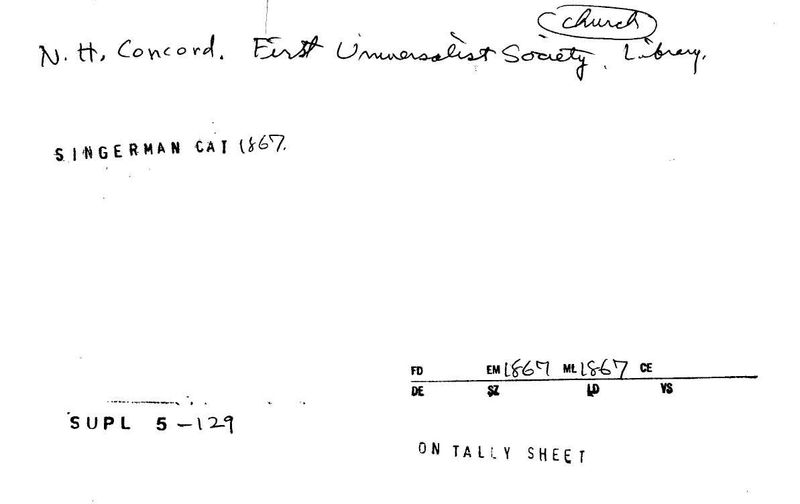 church
N. H., Concord. First Universalist Society. Library.
SINGERMAN CAT 1867.
FD EM 1867 ML 1867 CE
DE SZ LD VS
SUPL 5-129
ON TALLY SHEET